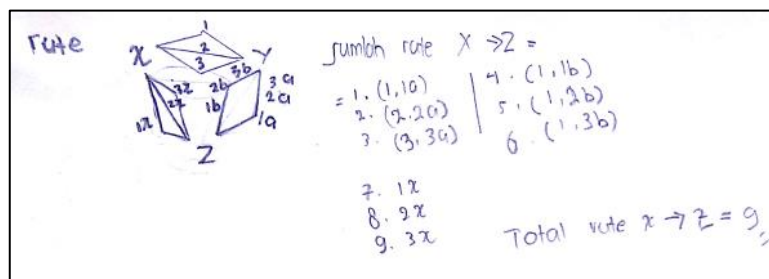 rute
X
1
2
3
Y
3b
3a
2a
1a
2b
1b
3x
2x
1x
Z
Jumlah rute X → Z =
= 1. (1, 1a)
2. (2, 2a)
3. (3, 3a)
4. (1, 1b)
5. (1, 2b)
6. (1, 3b)
7. 1x
8. 2x
9. 3x
Total rute x → z = 9